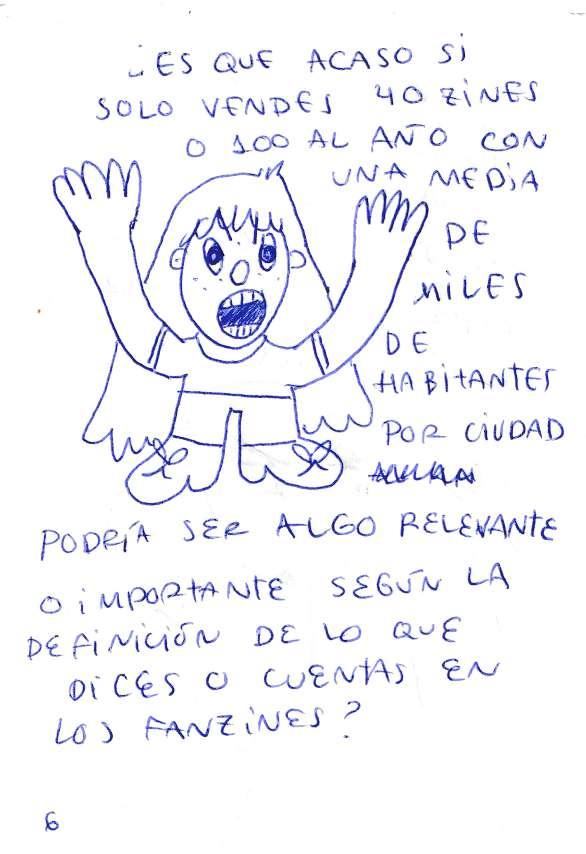 ¿ES QUE ACASO SI
SOLO VENDES 40 ZINES
O 100 AL AÑO CON
UNA MEDIA
DE
MILES
DE
HABITANTES
POR CIUDAD
PODRÍA SER ALGO RELEVANTE
O IMPORTANTE SEGÚN LA
DEFINICIÓN DE LO QUE
DICES O CUENTAS EN
LOS FANZINES?
6